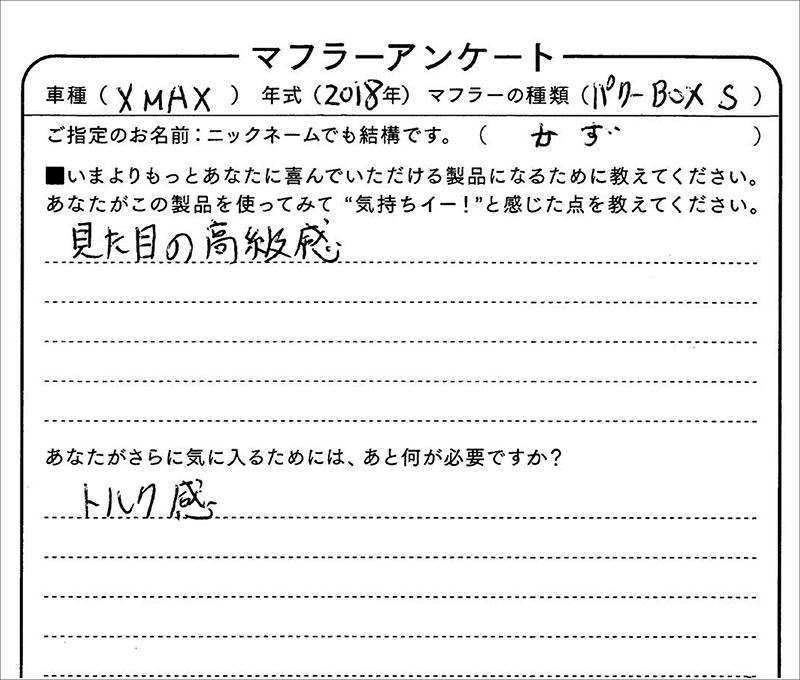 マフラーアンケート
車種（XMAX）年式（2018年）マフラーの種類（パワーBOX S）
ご指定のお名前：ニックネームでも結構です。（かず）
■いまよりもっとあなたに喜んでいただける製品になるために教えてください。
あなたがこの製品を使ってみて“気持ちイー！”と感じた点を教えてください。
見た目の高級感
あなたがさらに気に入るためには、あと何が必要ですか？
トルク感